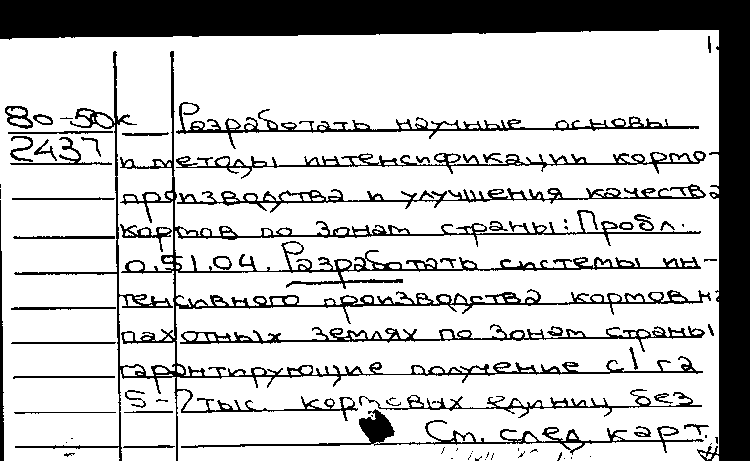 1.
80-50к Разработать научные основы
2437 и методы интенсификации кормо-
производства и улучшения качества
кормов по зонам страны: Пробл.
0.51.04. Разработать системы ин-
тенсивного производства кормов на
пахотных землях по зонам страны
гарантирующие получение с 1 га
5-7 тыс. кормовых единиц без
См. след. карт.